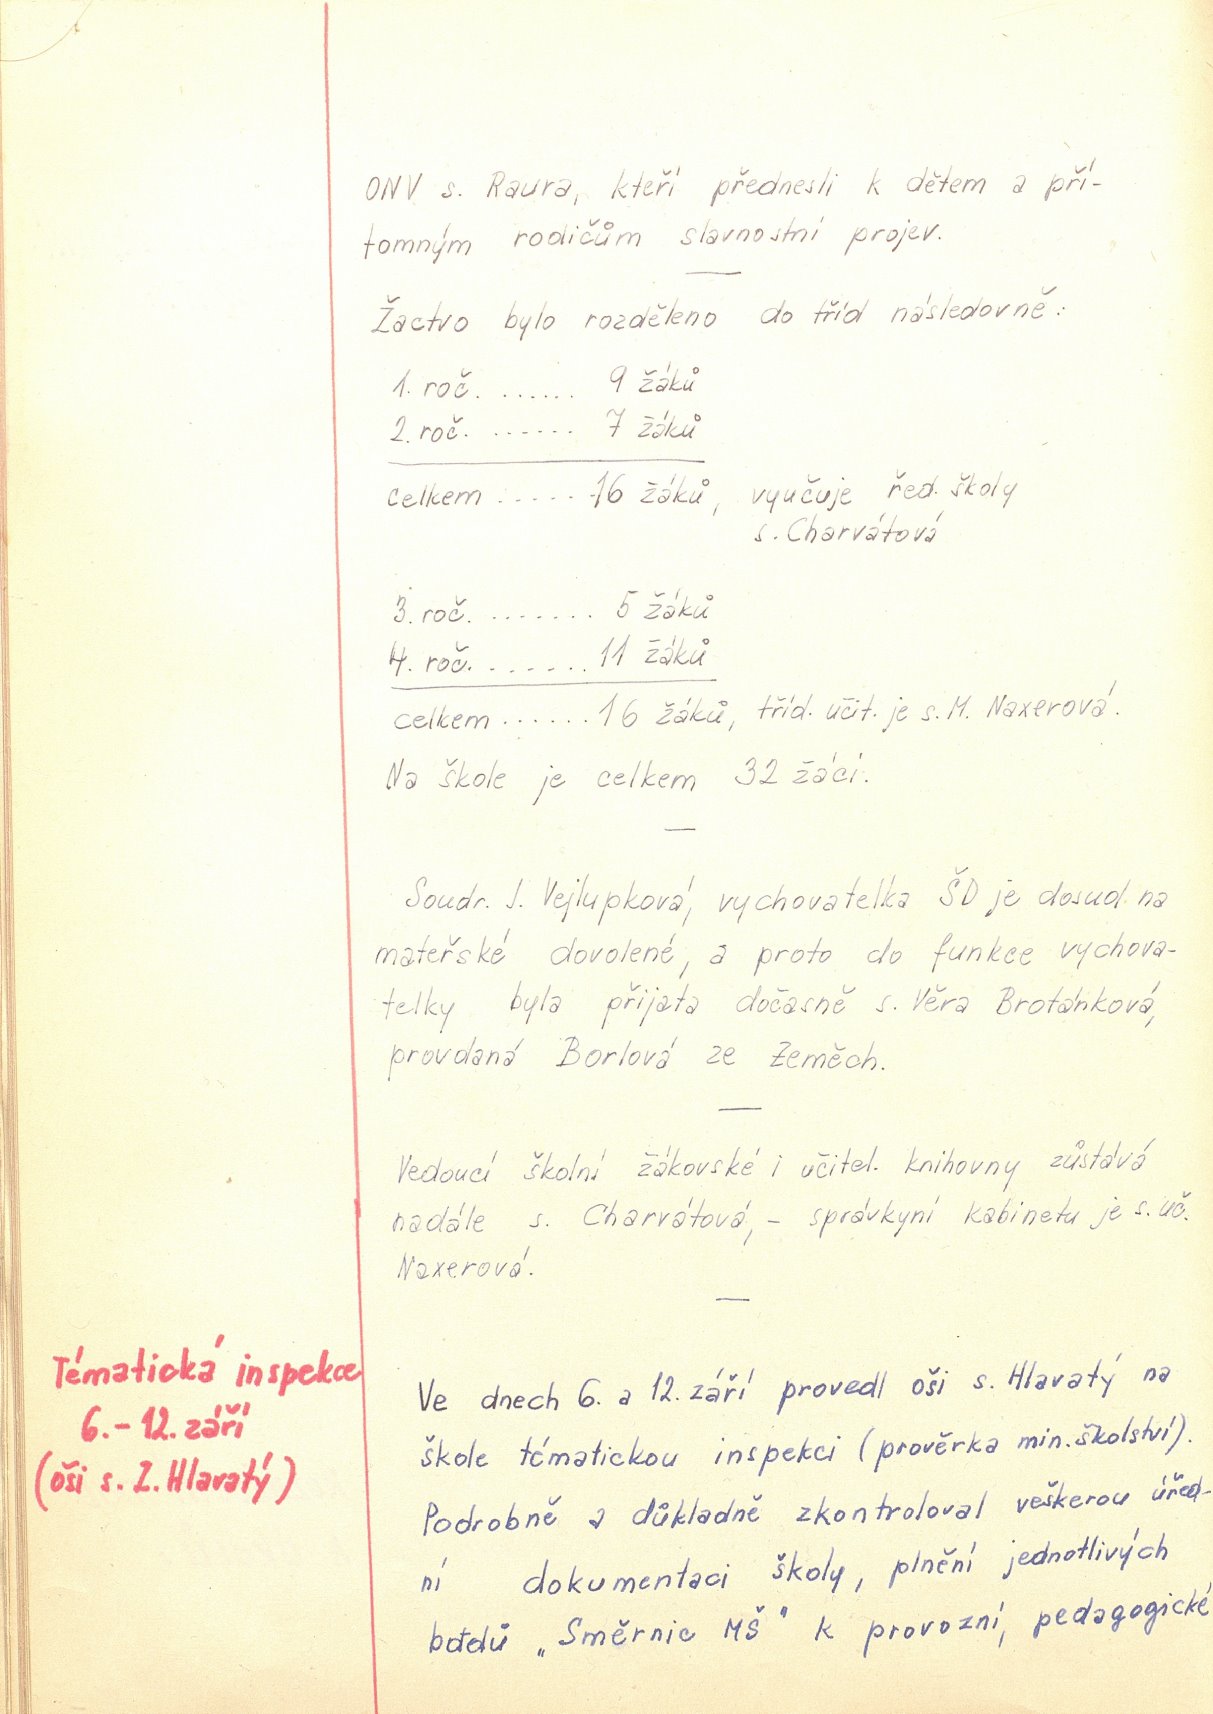 ONV s. Raura, kteří přednesli k dětem a pří-
tomným rodičům slavnostní projev.
Žactvo bylo rozděleno do tříd následovně:
1. roč. ...... 9 žáků
2. roč. ...... 7 žáků
celkem ...... 16 žáků, vyučuje řed. školy
s. Charvátová
3. roč. ....... 5 žáků
4. roč. ....... 11 žáků
celkem ...... 16 žáků, tříd. učit. je s. M. Naxerová.
Na škole je celkem 32 žáci.
Soudr. J. Vejlupková, vychovatelka ŠD je dosud na
mateřské dovolené, a proto do funkce vychova-
telky byla přijata dočasně s. Věra Brotánková,
provdaná Borlová ze Zeměch.
Vedoucí školní žákovské i učitel. knihovny zůstává
nadále s. Charvátová, – správkyní kabinetu je s. uč.
Naxerová.
Tématická inspekce
6. – 12. září
(oši s. Z. Hlavatý)
Ve dnech 6. a 12. září provedl oši s. Hlavatý na
škole tématickou inspekci (prověrka min. školství).
Podrobně a důkladně zkontroloval veškerou úřed-
ní dokumentaci školy, plnění jednotlivých
bodů „Směrnic MŠ" k provozní, pedagogické